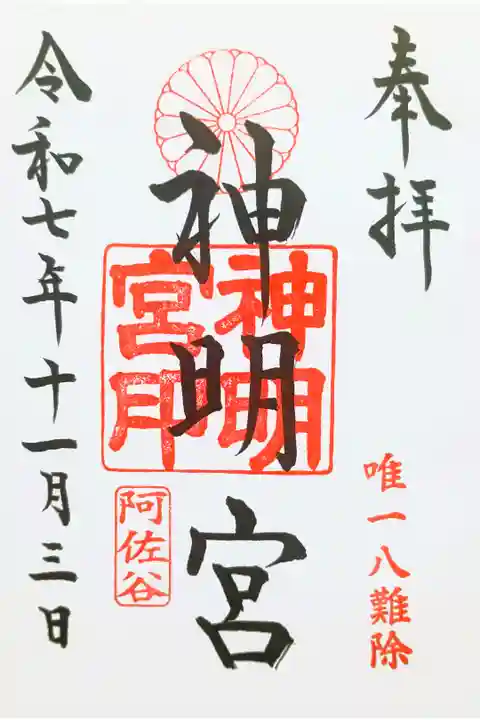 奉拝
唯一八難除
神明宮
神明宮印
阿佐谷
令和七年十一月三日